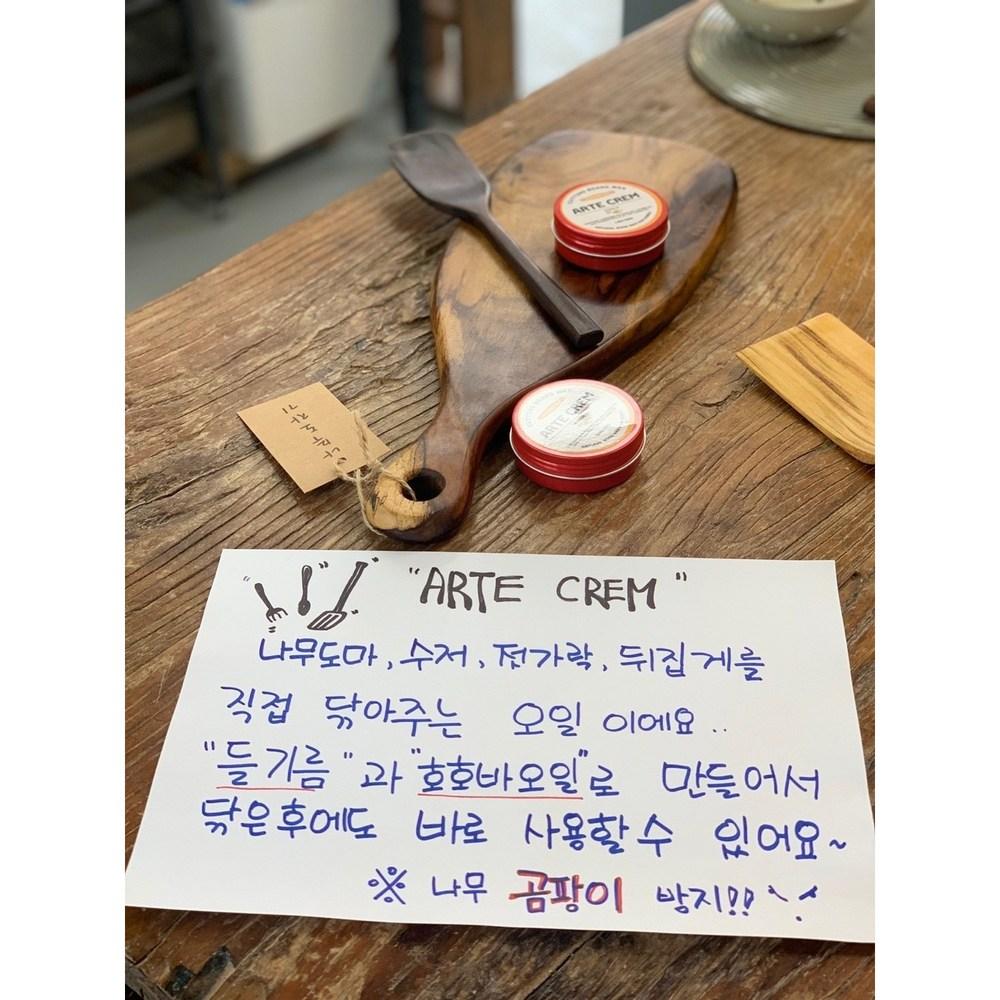 CUTTING BOARD WAX
ARTE CREM
ARTE CREM
나무도자기
"ARTE CREM"
나무도마, 수저, 젓가락, 뒤집게를
직접 닦아주는 오일 이에요..
"들기름"과 "호호바오일"로 만들어서
닦은후에도 바로 사용할수 있어요~
※ 나무 곰팡이 방지!!